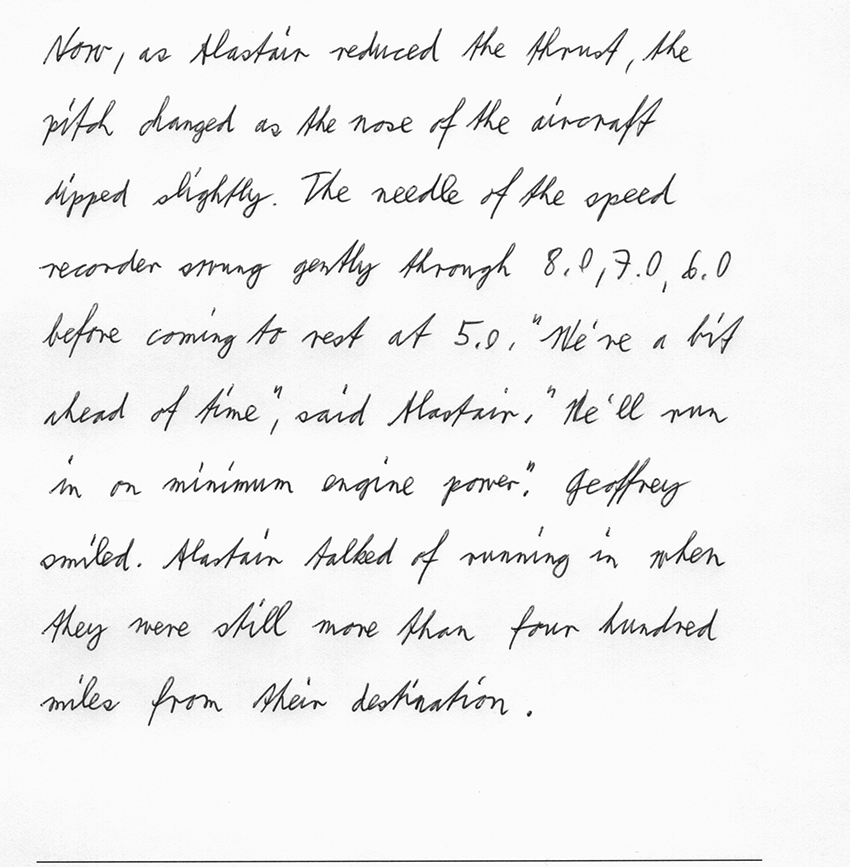 Now, as Alastair reduced the thrust, the
pitch changed as the nose of the aircraft
dipped slightly. The needle of the speed
recorder swung gently through 8.0, 7.0, 6.0
before coming to rest at 5.0. "We're a bit
ahead of time", said Alastair. "We'll run
in on minimum engine power". Geoffrey
smiled. Alastair talked of running in when
they were still more than four hundred
miles from their destination.